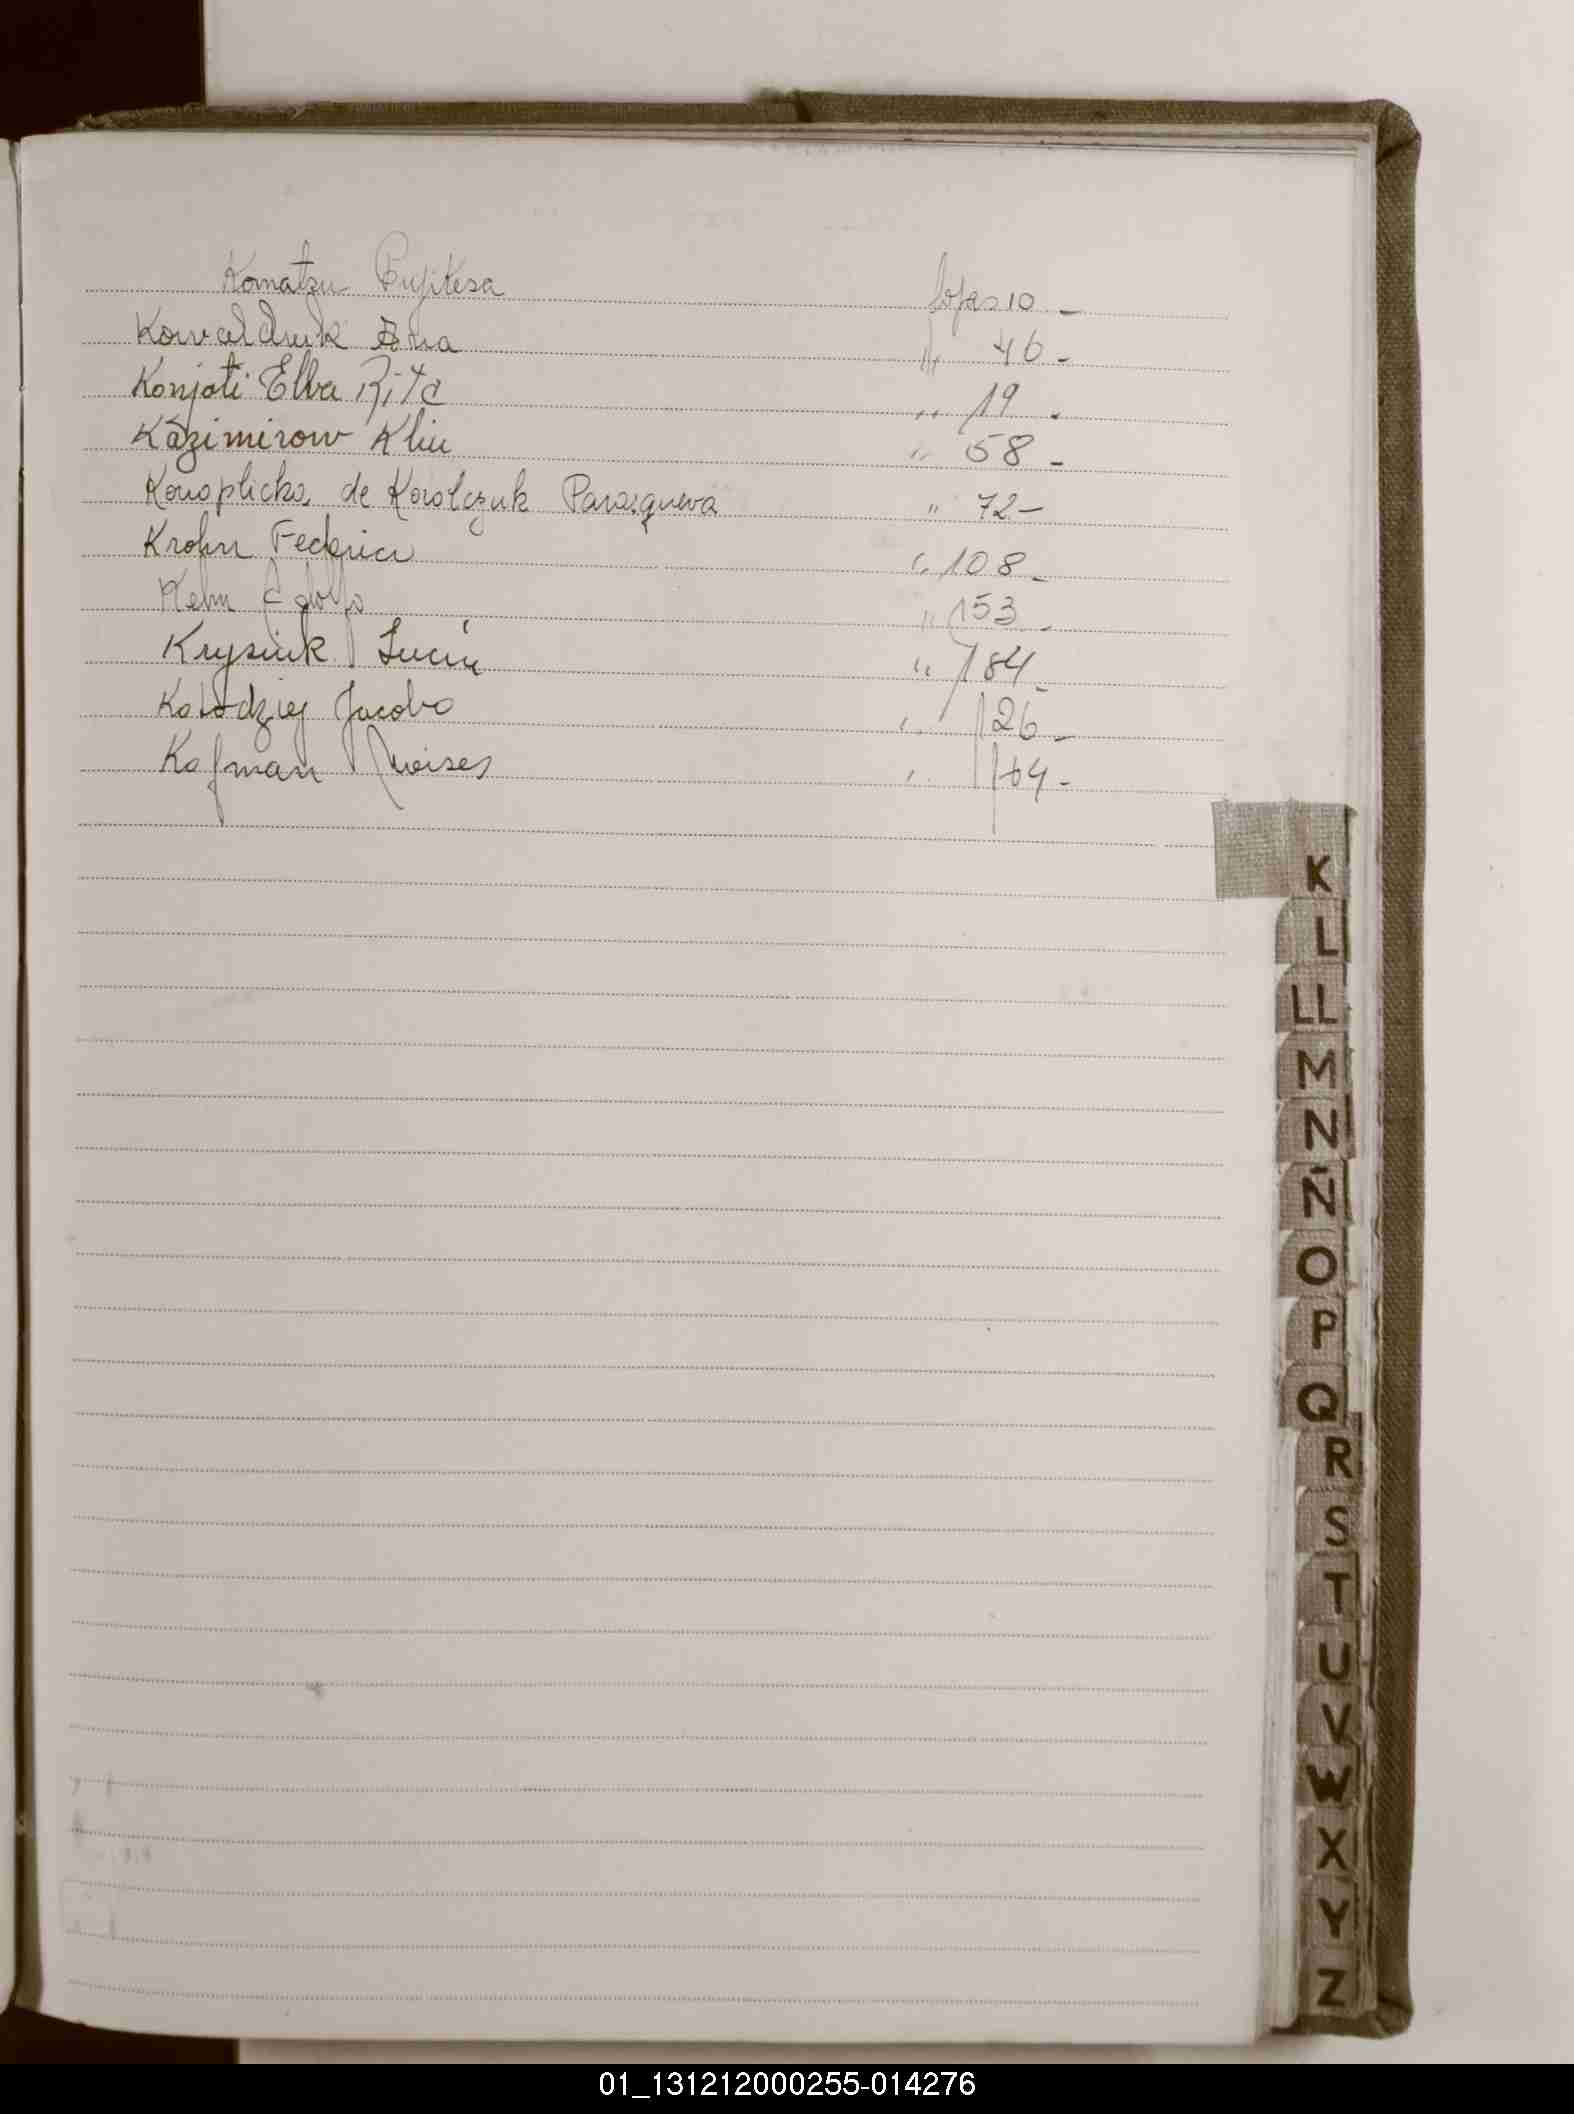 Komatzu Fujikesa fojas 10 -
Kowalchuk Ana " 46 -
Konjati Elba Rita " 19 -
Kazimirow Kliu " 58 -
Konoplicka de Korolczuk Parasquewa " 72 -
Krohn Federico " 108 -
Kehn Adolfo " 153 -
Krysiuk Lucia " 184 -
Kolodziej Jacobo " 126 -
Kofman Moises " 164 -
K
L
LL
M
N
Ñ
O
P
Q
R
S
T
U
V
W
X
Y
Z
01_131212000255-014276